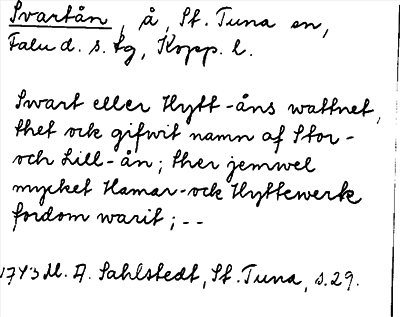 Svartån, å, St. Tuna sn,
Falu d. s. fg, Kopp. l.
Swart eller Hytt-åns wattnet,
thet ock gifwit namn af Stor-
och Lill-ån; ther jemwel
mycket Hamar- ock Hyttewerk
fordom warit; --
1743 M. A. Sahlstedt, St. Tuna, s. 29.